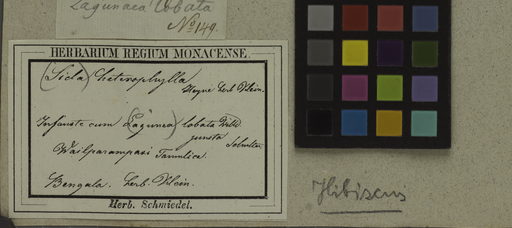 Lagunaea lobata
No 149.
HERBARIUM REGIUM MONACENSE.
(Sida) heterophylla
Heyne herb Klein.
cum (Lagunea) lobata Willd
juncta
Wailparampasi Tamulice.
Bengala. herb. Klein.
Herb. Schmiedel.
Hibiscus